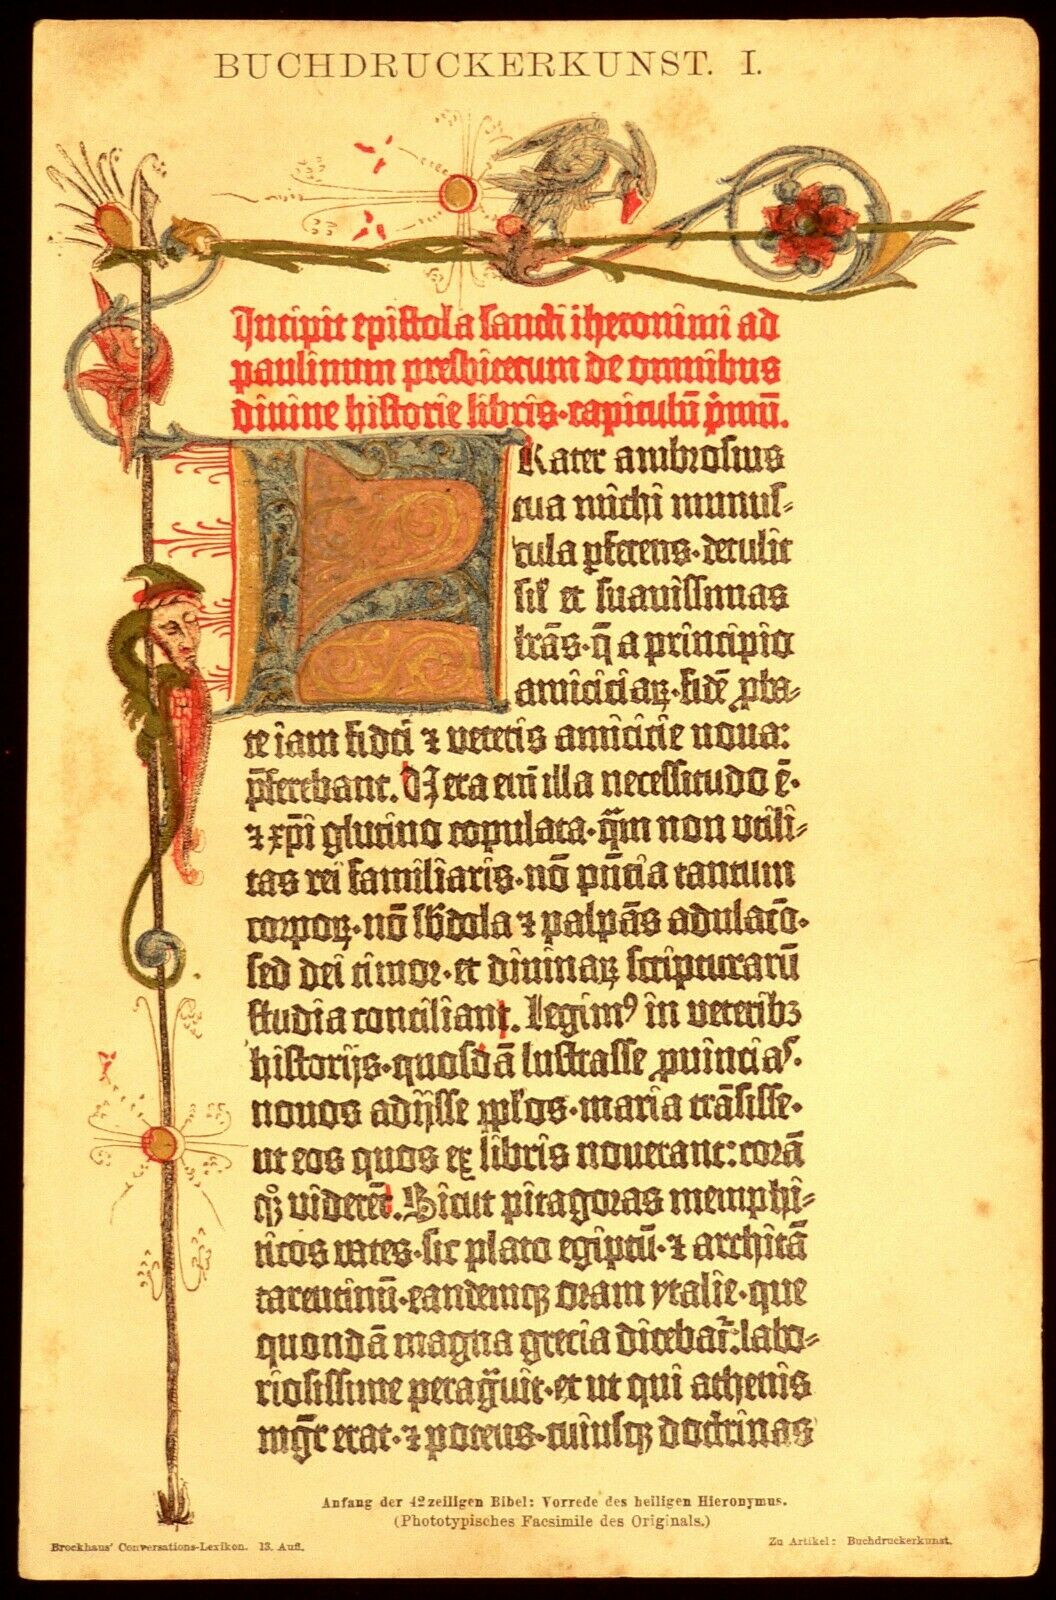 BUCHDRUCKERKUNST. I.
Incipit epistola sancti iheronimi ad
paulinum presbiterum de omnibus
divine historie libris·capitulū p̄mū.
FRater ambrosius
tua michi munus-
cula ꝑferens·detulit
sil̛ et suauissimas
lr̄as·q̄ a principio
amiciciaꝝ·fidē ꝓba-
te iam fidei ⁊ veteris amicicie noua:
p̄ferebant. Uera eni̅ illa necessitudo ē·
⁊ xp̄i glutino copulata·qm̄ non vtili-
tas rei familiaris·nō pn̄tia tantum
corpoꝝ·nō sb̄dola ⁊ palpās adulatō·
sed dei timor·et diuinaꝝ scripturarū
studia conciliant. Legimꝰ in veteribꝫ
historijs·quosdā lustrasse ꝓuincias·
nouos adijsse ppl̄os·maria trāsisse·
ut eos quos ex libris nouerant: corā
qꝫ viderēt. Sicut pitagoras memphi-
ticos vates·sic plato egiptū·⁊ architā
tarentinū·eandemqꝫ oram ytalie·que
quondā magna grecia dicebat̄: labo-
riosissime peragͣuit·et ut qui athenis
mgr̄ erat·⁊ potens·cuiusqꝫ doctrinas
Anfang der 42zeiligen Bibel: Vorrede des heiligen Hieronymus.
(Phototypisches Facsimile des Originals.)
Brockhaus' Conversations-Lexikon. 13. Aufl.
Zu Artikel: Buchdruckerkunst.